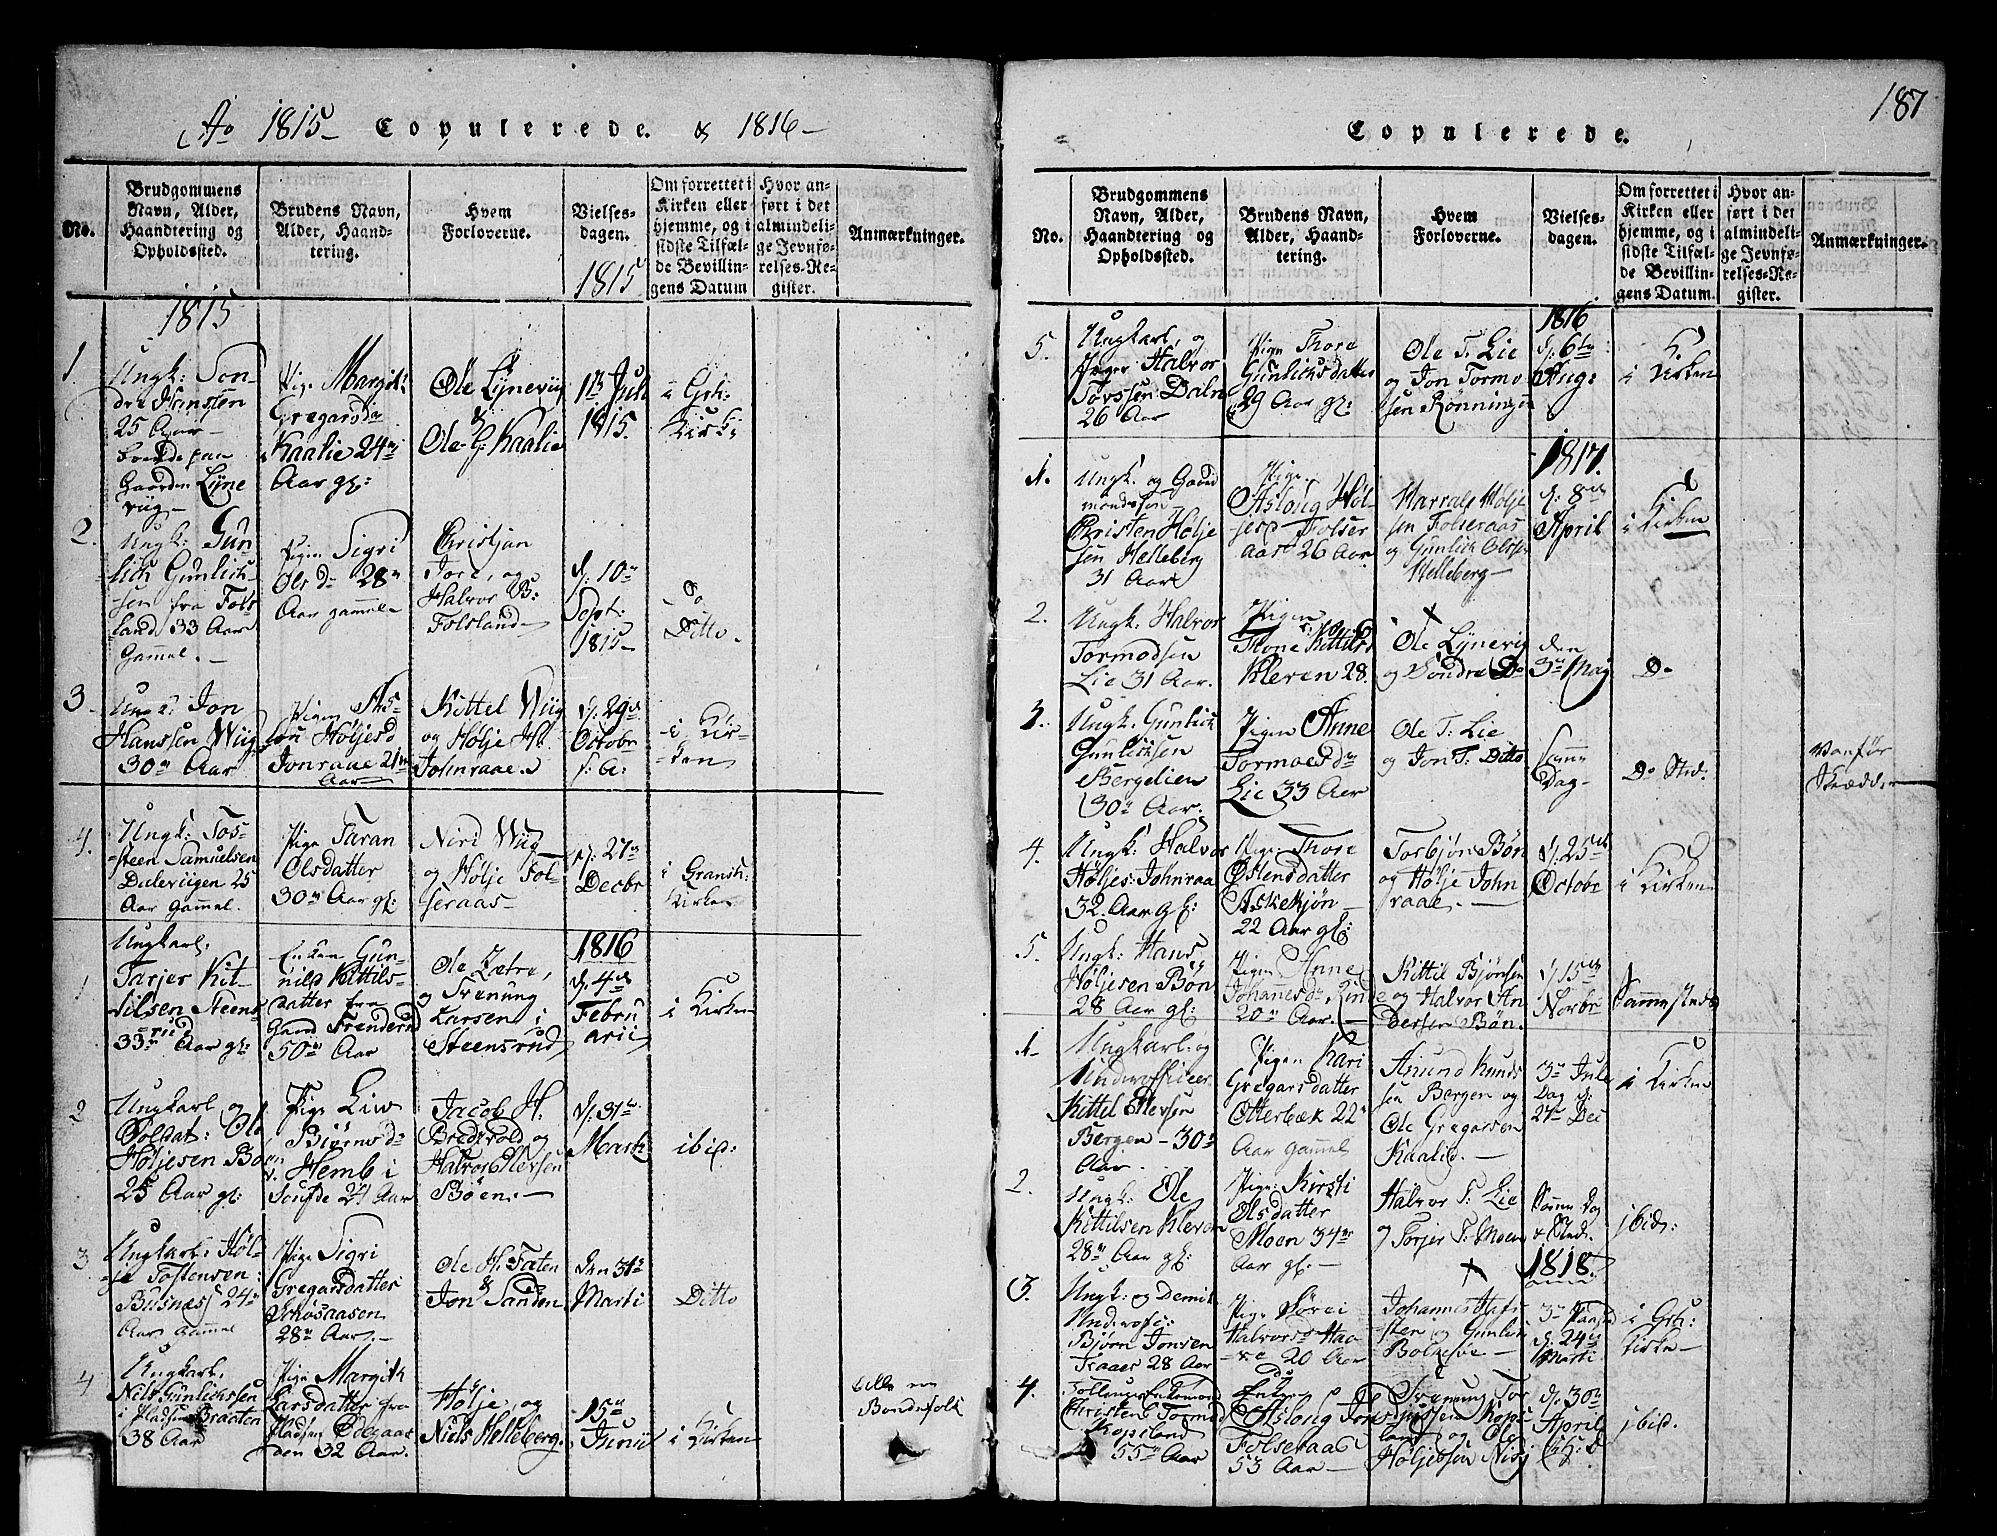 Ao 1815 Copulerede. & 1816
No.
Brudgommens
Navn, Alder,
Haandtering og
Opholdssted.
Brudens Navn,
Alder, Haand-
tering.
Hvem
Forloverne.
Vielses-
dagen.
1815
Om forrettet i
Kirken eller
hjemme, og i
sidste Tilfæl-
de Bevillin-
gens Datum
Hvor an-
ført i det
almindeli-
ge Jevnfø-
relses-Re-
gister.
Anmærkninger.
1815
1.
Ungk: Son-
dre Hanssen
25 Aar
Boende paa
Gaarden Lyne
viig
Pige Margit
Gregarsd
Kaalie 24
Aar gl:
Ole Lyneviig
&
Ole G. Kaalie
1815.
i Grh:
Kirke
2.
Ungk: Gun
lich Gunlich-
sen fra Fols
land 33 Aar
Gammel.
Pigen Sigri
Olsd 28
Aar gammel
Christjan
Tore, og
Halvor B:
Folsland
d: 10
Sept:
1815
Do
Ditto.
3.
Jon
Hanssen Wiig
30 Aar
Pigen As-
lou Høljesd
Jonraae 21
Aar
Kittel Wiig
og Hølje H.
Johnraae
d: 29
Octobr
s: A:
i Kir-
ken
4.
Ungk: Tos-
steen Samuelsen
Daleviigen 25
Aar Gammel.
Pige Taran
Olsdatter
30 Aar gl:
Niri Wiig
og Hølje Fol-
seraas
d: 27
Decbr
i Gransh:
Kirken
1
Ungkarl:
Tarjer Kit-
tilsen Steens-
rud
33 Aar gl:
Enken Gun-
nild Kittils-
datter fra
Gaard Frenderud
50 Aar
Ole Zetre,
og Svenung
Larsen i
Steensrud
1816
d: 4
Febru
arii
i Kirken
2
Ungkarl og
Soldat: Ole
Høljesen Boen
25 Aar gl:
Pige Liw
Biørnsd
v. Hemb i
24 Aar
Jacob H.
Bredvold og
Halvor Ellevsen
Bøen.
d: 31
Marti
ibid:
3
Ungkarl: Høl-
je Tostensen
Busnes 24
Aar Gammel
Pige Sigri
Gregarsdatter
Schøsaasen
28 Aar.
Ole H. Faten
&
Jon Sanden
Den 31
Marti
Ditto
4
Ungkarl:
Niels Gunlichssen
i Pladsen Braaten
38 Aar
Pige Margith
Larsdatter fra
Pladsen Ødegaar
den 32 Aar.
Hølje, og
Niels Helleberg.
15
Junii
i Kirken
Alle ere
Bondefolk
187
Copulerede.
No.
Brudgommens
Navn, Alder,
Haandtering og
Opholdssted.
Brudens Navn,
Alder, Haand-
tering.
Hvem
Forloverne.
Vielses-
dagen.
Om forrettet i
Kirken eller
hjemme, og i
sidste Tilfæl-
de Bevillin-
gens Datum.
Hvor an-
ført i det
almindeli-
ge Jevnfø-
relses-Re-
gister.
Anmærkninger.
5.
Ungkarl, og
Jæger Halvor
Tovssen Daln
26 Aar
Pige Thore
Gunlichsdatter
29 Aar gl:
Ole T. Lie
og Jon Tormo
sen Rønningen
1816
d: 6te
Aug:
i Kirken
1.
Ungk. og Gaard
mandssøn
Christen Hølje
sen Helleberg
31 Aar
Pige
Aslong Høl-
jesd Folser
aas 26 Aar
Harrald Hølje
sen Folseraas
og Gunlich Olssen
Helleberg
1817.
d: 8
April
i Kirken
2.
Ungk: Halvor
Tormodsen
Lie 31 Aar.
Pigen
Thone Kittilsd
Kleven 28.
Ole Lynevig
og Søndre Do
den
3 Maj
Do
3.
Ungk: Gunlich
Gunlichsen
Bergelien
30 Aar.
Pigen Anne
Tormoesd
Lie 33 Aar
Ole T: Lie
og Jon T: Ditto
Samme
Dag
Do Sted:
Vanfør
Skrædder
4.
Ungk: Halvor
Høljes: Johnraa
32 Aar gl:
Pige: Thore
Østensdatter
Askekjøn
22 Aar gl:
Torbjørn Bøn
og Hølje John
raae.
d: 25
Octobr
i Kirken
5.
Ungk: Hans
Høljesen Bøn
28 Aar gl:
Pigen Anne
Johannesd Rinde
20 Aar.
Kittil Bjørnsen
og Halvor An
dersen Bøn.
d: 15
Novbr
Sammesteds
1
Ungkarl: og
Underofficeer
Kittel Ellevsen
Bergen 30
Aar.
Pigen Kari
Gregarsdatter
Otterbæk 22
Aar gammel
Asiund Knuds
sen Bergen og
Ole Gregarsen
Kaalie.
3 Jule
Dag d:
27 Dec
i Kirken
2.
Ungk: Ole
Kittilsen Kleven
28 Aar gl:
Pige: Kirsti
Olsdatter
Moen 34
Aar gl:
Halvor T: Lie
og Torjer T: Moen
Samme Dag
& Sted.
ibid:
3.
Ungk: og Demit
Underofc:
Bjørn Jonsen
Traaer 28 Aar
Pige Sørei
Halvorsd Haa-
ve 20 Aar
Johannes
og Gunlei
Bolkesøe
1818
3 Paasked
d: 24
Marti
i Grh:
Kirke
4.
Christen Tormod
Kopsland
55 Aar
Enken
Aslong Jons
Folseraas
53 Aar
Svenung Tor
jussen Kops
land og Ole
Høljebsen
d: 30
April
ibid.